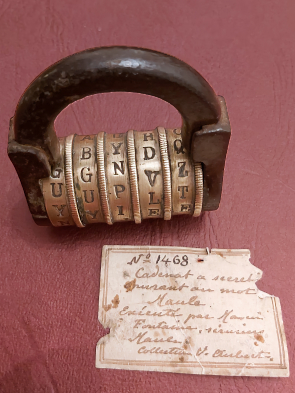 G U Y
B G U Y
Y N P I
H D V L E
Q Z T E
No 1468
Cadenat a secret
ouvrant au mot
Maule
Exécuté par
Fontaine, serrurier
Maule
Collection